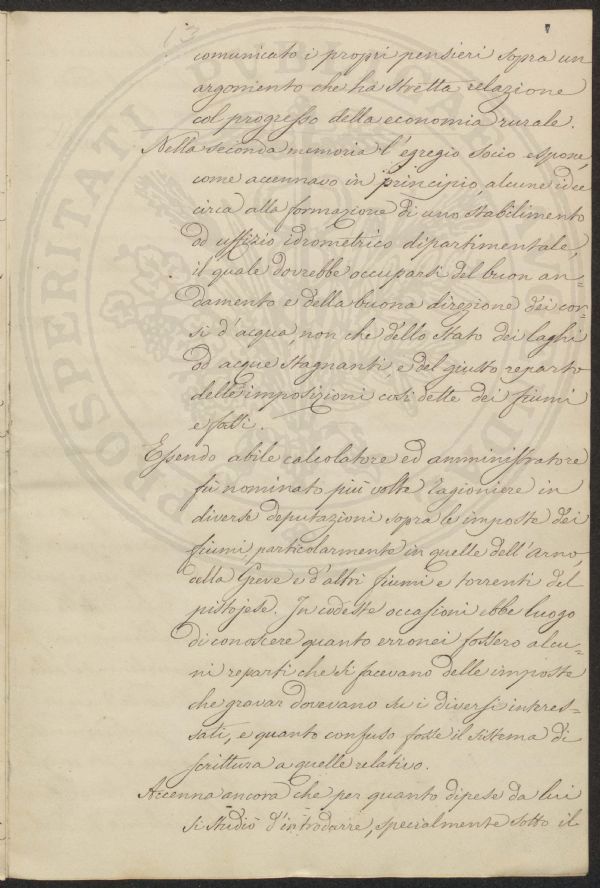 13
comunicato i propri pensieri sopra un
argomento che ha stretta relazione
col progresso della economia rurale.
Nella seconda memoria l'egregio socio espone,
come accennavo in principio, alcune idee
circa alla formazione di uno stabilimento
od uffizio idrometrico dipartimentale,
il quale dovrebbe occuparsi del buon an-
damento e della buona direzione dei cor-
si d'acqua, non che dello stato dei laghi
od acque stagnanti e del giusto reparto
delle imposizioni così dette dei fiumi
e fossi.
Essendo abile calcolatore ed amministratore
fù nominato più volte ragioniere in
diverse deputazioni sopra le imposte dei
fiumi, particolarmente in quelle dell'Arno,
della Greve e d'altri fiumi e torrenti del
pistojese. In codeste occasioni ebbe luogo
di conoscere quanto erronei fossero alcu-
ni reparti che si facevano delle imposte
che gravar dovevano su i diversi interes-
sati, e quanto confuso fosse il sistema di
scrittura a quelle relativo.
Accenna ancora che per quanto dipese da lui
si studiò d'introdurre, specialmente sotto il
PROSPERITATI